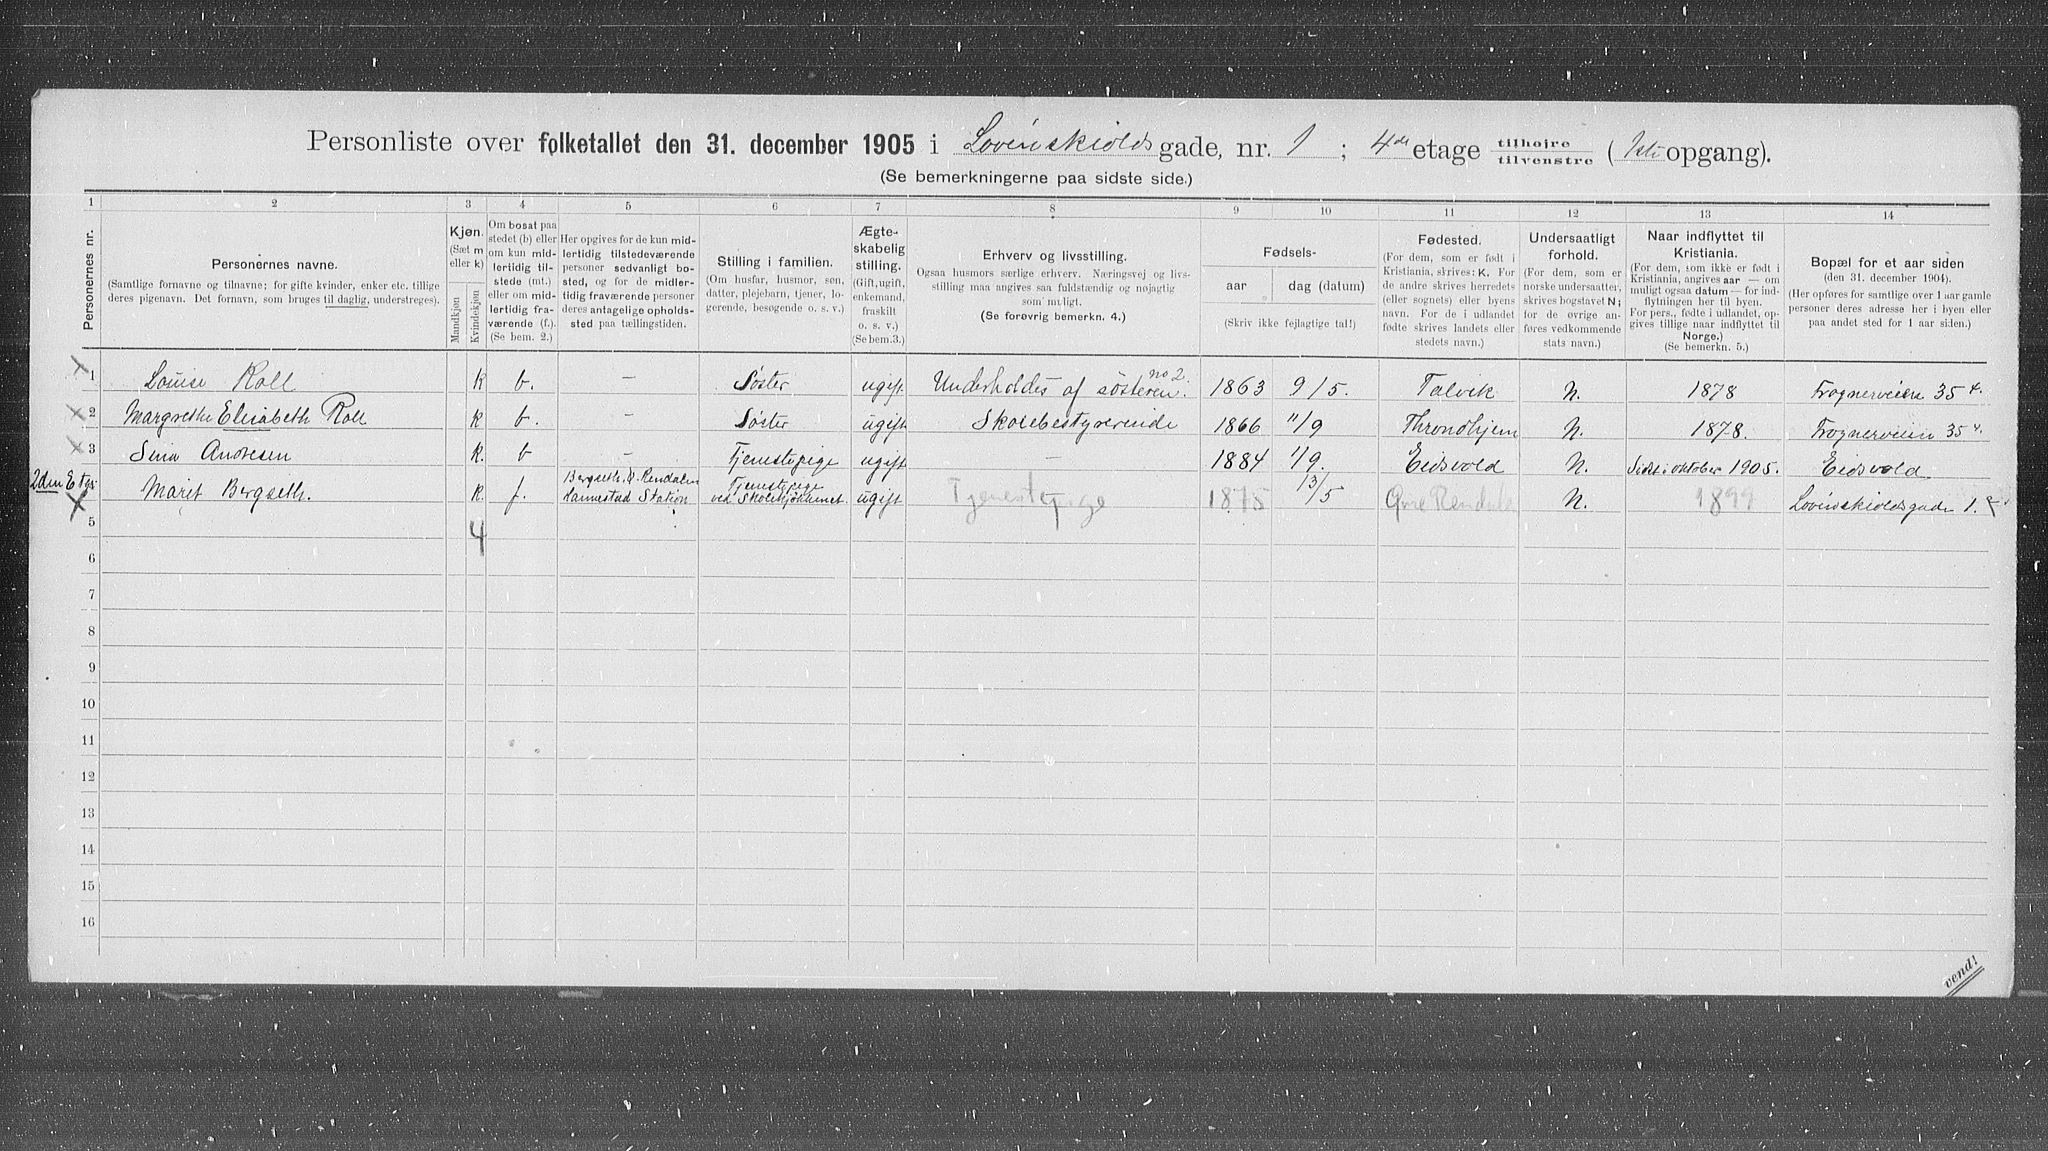 Personliste over folketallet den 31. december 1905 i Lovenskiolds gade, nr. 1 ; 4de etage tilhøjre / tilvenstre ( 1ste opgang).
(Se bemerkningerne paa sidste side.)
1 2 3 4 5 6 7 8 9 10 11 12 13 14
Personernes nr.
Personernes navne.
(Samtlige fornavne og tilnavne; for gifte kvinder, enker etc. tillige
deres pigenavn. Det fornavn, som bruges til daglig, understreges).
Kjøn.
(Sæt m
eller k)
Mandkjøn
Kvindekjøn
Om bosat paa
stedet (b) eller
om kun mid-
lertidig til-
stede (mt.)
eller om mid-
lertidig fra-
værende (f.).
(Se bem. 2.)
Her opgives for de kun mid-
lertidig tilstedeværende
personer sedvanligt bo-
sted, og for de midler-
tidig fraværende personer
deres antagelige opholds-
sted paa tællingstiden.
Stilling i familien.
(Om husfar, husmor, søn,
datter, plejebarn, tjener, lo-
gerende, besøgende o. s. v.)
Ægte-
skabelig
stilling.
(Gift, ugift,
enkemand,
fraskilt
o. s. v.)
(Se bem.3.)
Erhverv og livsstilling.
Ogsaa husmors særlige erhverv. Næringsvej og livs-
stilling maa angives saa fuldstændig og nøjagtig
som muligt.
(Se forøvrig bemerkn. 4.)
Fødsels-
aar
dag (datum)
(Skriv ikke fejlagtige tal!)
Fødested.
(For dem, som er født i
Kristiania, skrives: K. For
de andre skrives herredets
(eller sognets) eller byens
navn. For de i udlandet
fødte skrives landets eller
stedets navn.)
Undersaatligt
forhold.
(For dem, som er
norske undersaatter,
skrives bogstavet N;
for de øvrige an-
føres vedkommende
stats navn.)
Naar indflyttet til
Kristiania.
(For dem, som ikke er født i
Kristiania, angives aar — om
muligt ogsaa datum — for ind-
flytningen her til byen.
For pers., fødte i udlandet, op-
gives tillige naar indflyttet til
Norge.)
(Se bemerkn. 5.)
Bopæl for et aar siden
(den 31. december 1904).
(Her opføres for samtlige over 1 aar gamle
personer deres adresse her i byen eller
paa andet sted for 1 aar siden.)
1 Louise Roll k b. — Søster ugift Underholdes af søsteren no 2. 1863 9/5. Talvik N. 1878 Frognerveien 35 4.
2 Margrethe Elisabeth Roll k b. — Søster ugift Skolebestyrerinde 1866 11/9 Throndhjem N. 1878. Frognerveien 35 4.
3 Sina Andresen k. b — Tjenestepige ugift — 1884 1/9. Eidsvold N. Sidst i oktober 1905. Eidsvold
2den Etg. Maret Bergseth. k. f. Bergseth. Ø. Rendalen Hannestad Station Tjenestepige ved Skolekjøkkenet ugift Tjenestepige 1875 13/5 Øvre Rendalen N. 1899 Lovenskioldsgade 1. 2
5
4
6
7
8
9
10
11
12
13
14
15
16
vend!